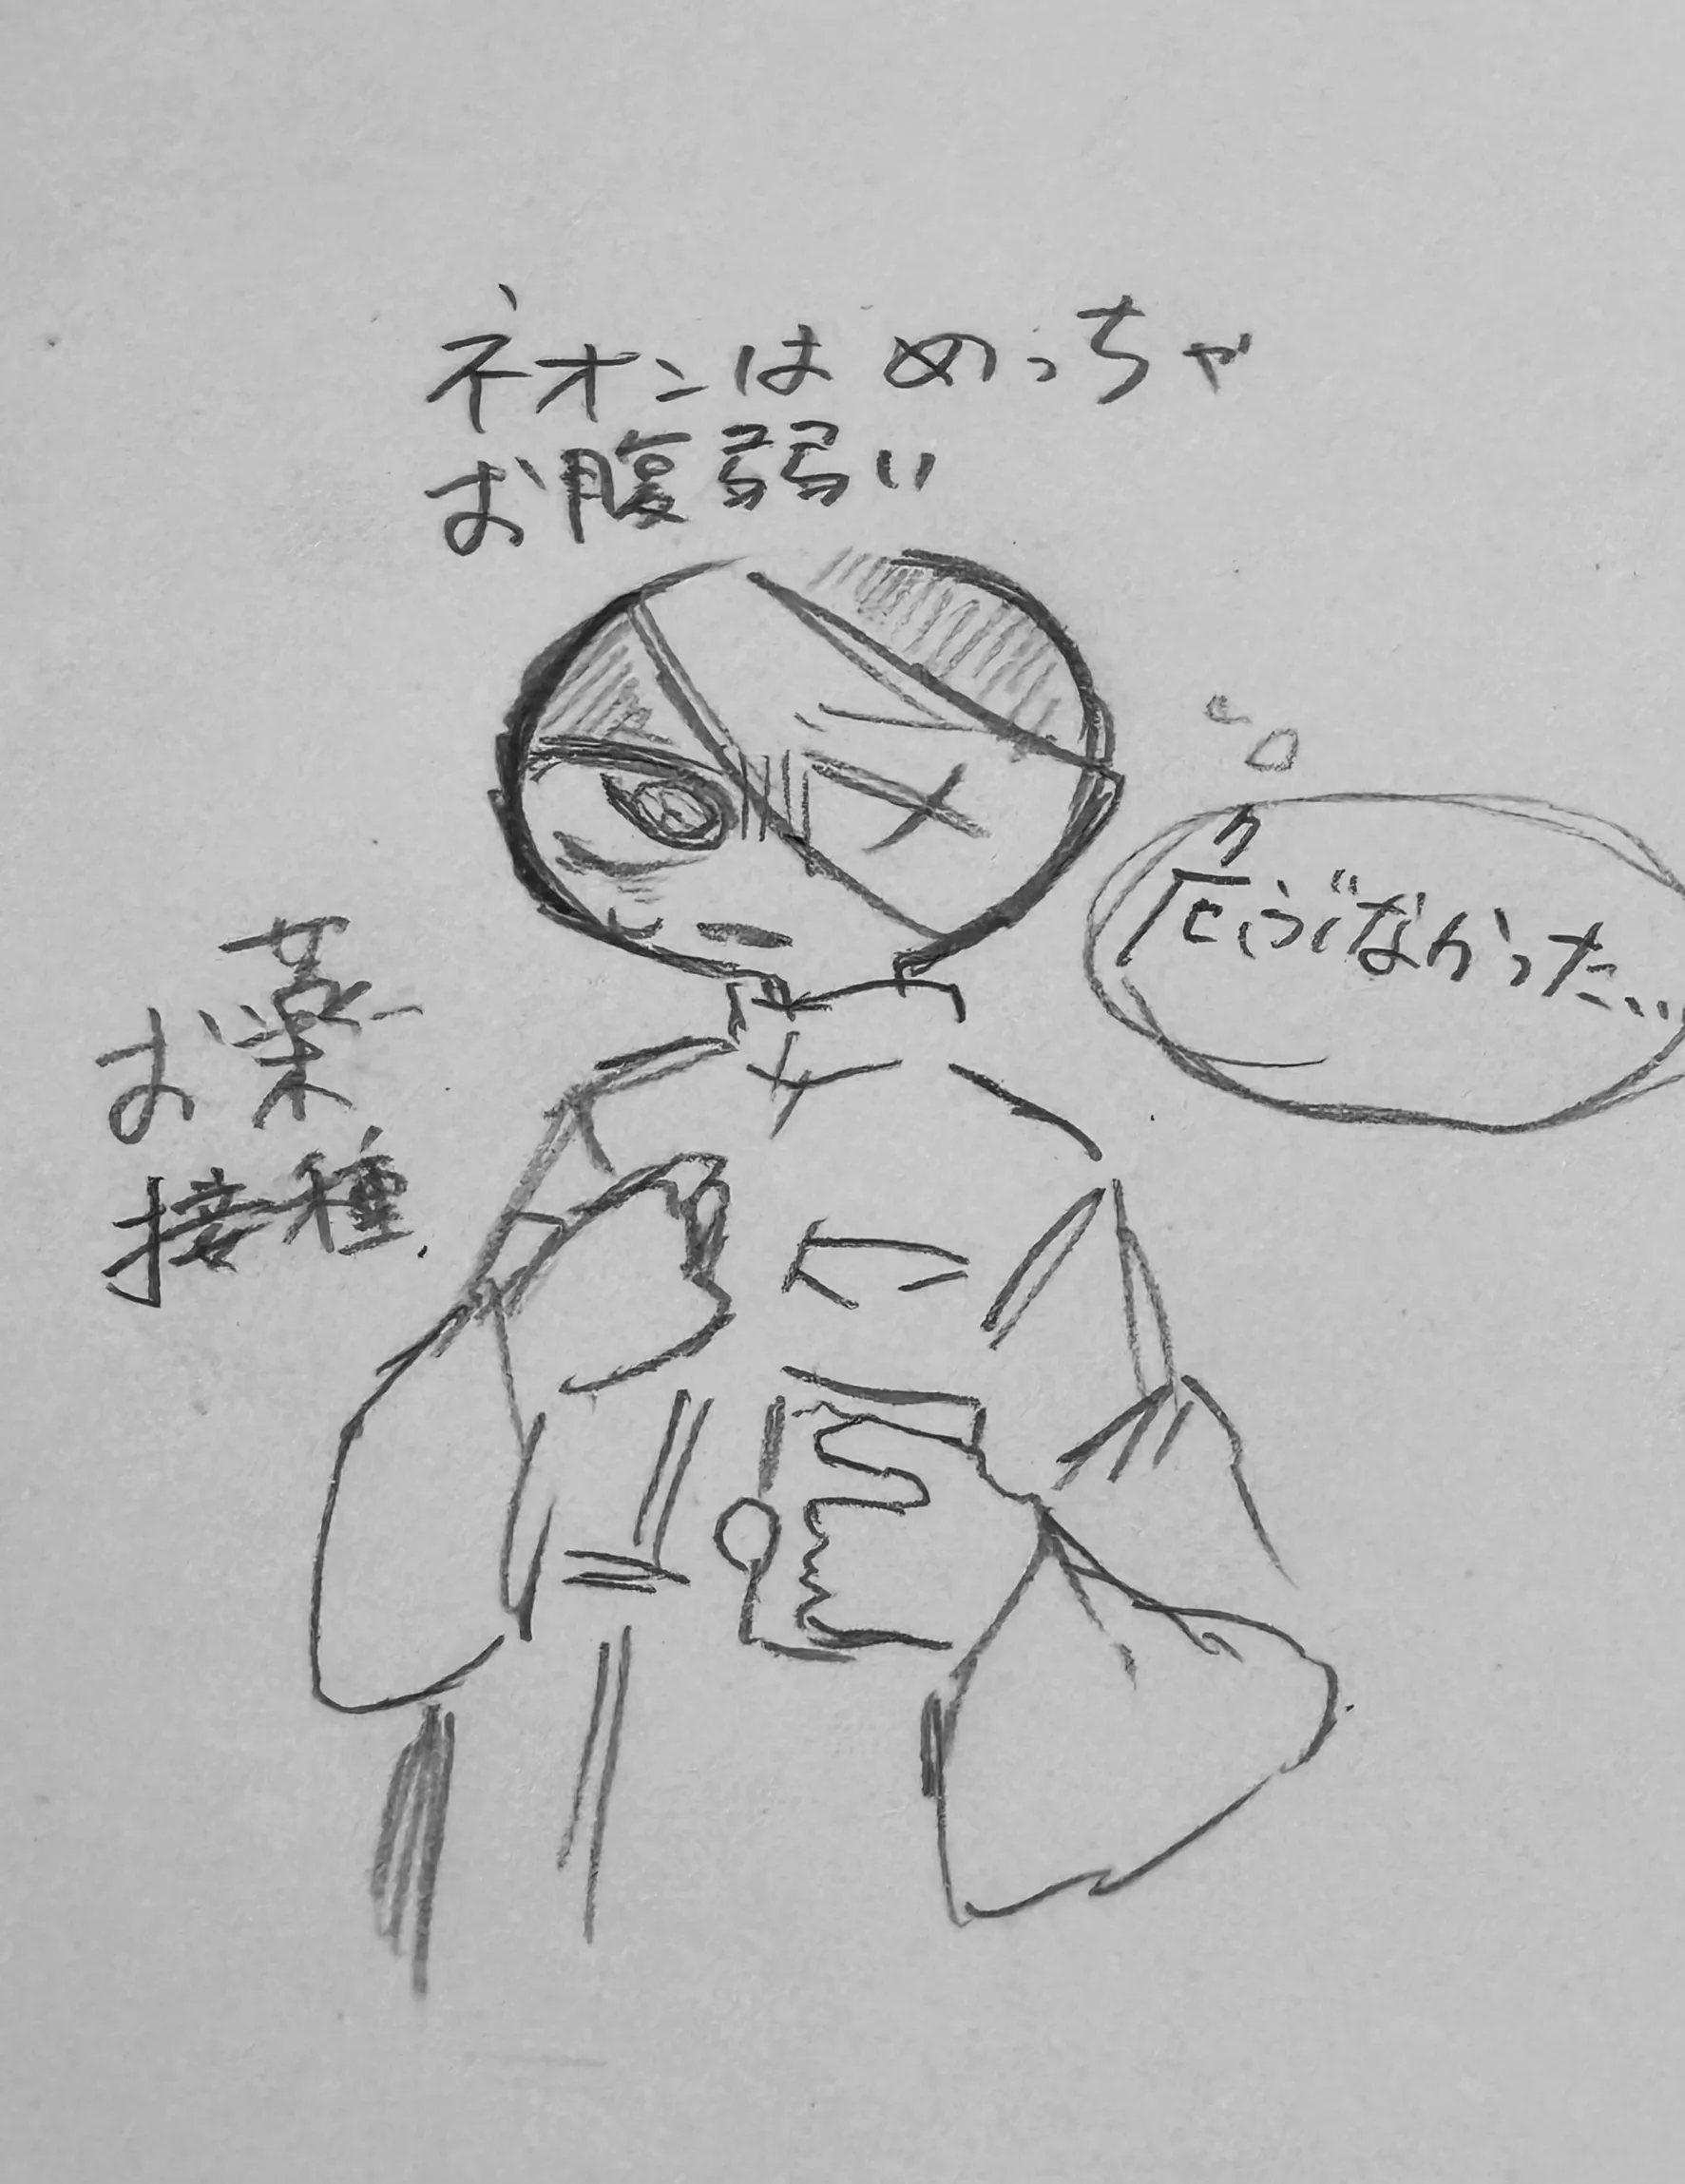 ネオンはめっちゃ
お腹弱い
お薬
接種.
なかった…